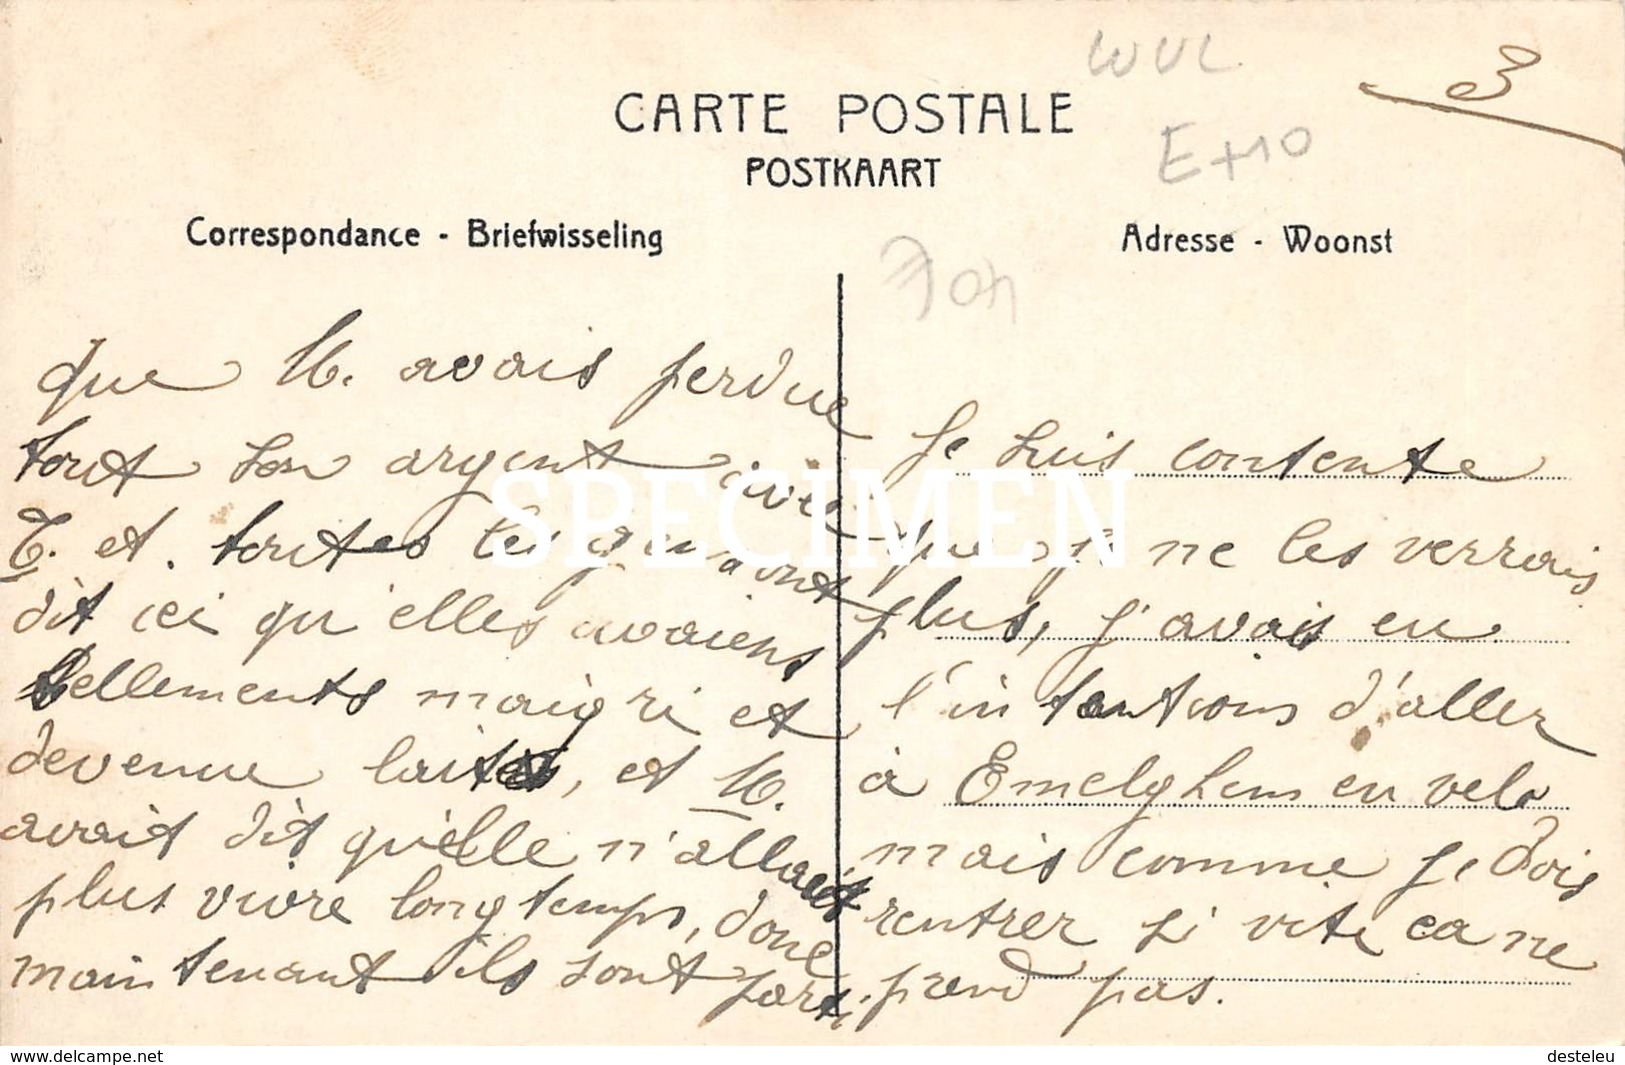 WUL
3
CARTE POSTALE
E+10
POSTKAART
Correspondance - Briefwisseling
Adresse - Woonst
que M. avais perdue
tout son argent avec
T. et. toutes les gens ont
dit ici qu'elles avaiens
tellements maigri et
devenue laites, et M.
avait dit qu'elle n'allait
plus vivre longtemps, donc
maintenant ils sont parti.
Je suis contente
que je ne les verrais
plus, j'avais eu
l'intentions d'aller
à Emelghem en velo
mais comme je dois
rentrer si vite ca ne
prend pas.
SPECIMEN
www.delcampe.net
desteleu